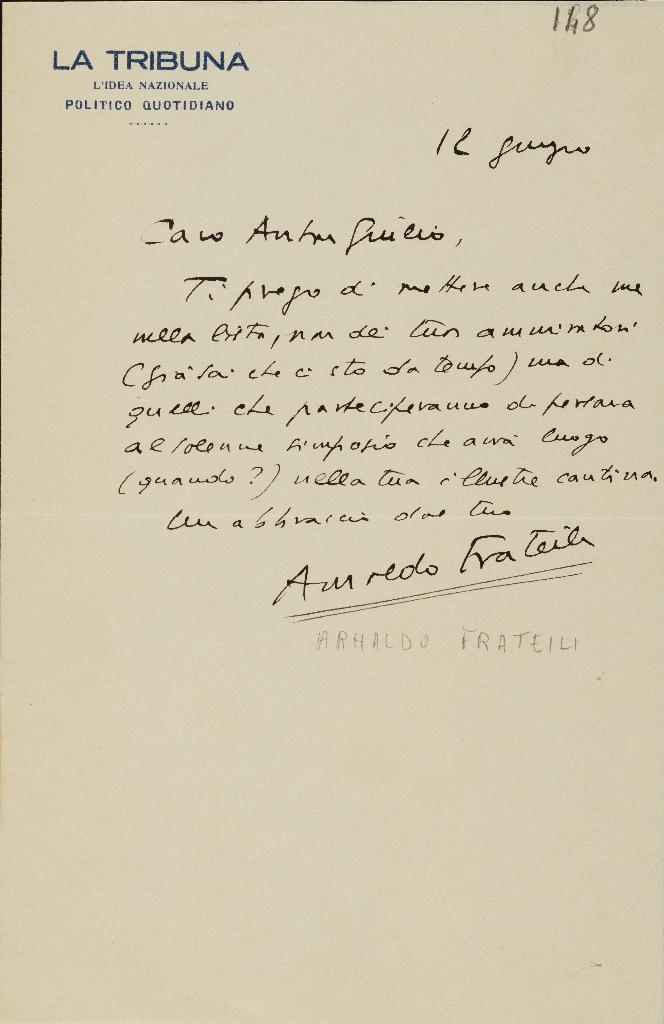 148
LA TRIBUNA
L'IDEA NAZIONALE
POLITICO QUOTIDIANO
12 giugno
Caro Anton Giulio,
Ti prego di mettere anche me
nella lista, non dei tuoi ammiratori
(già sai che ci sto da tempo) ma di
quelli che parteciperanno di persona
al solenne simposio che avrà luogo
(quando?) nella tua illustre cantina.
Un abbraccio dal tuo
Arnaldo Frateili
ARNALDO FRATEILI